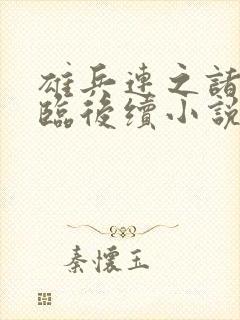 雄兵連之諸
臨後續小說
秦懷玉